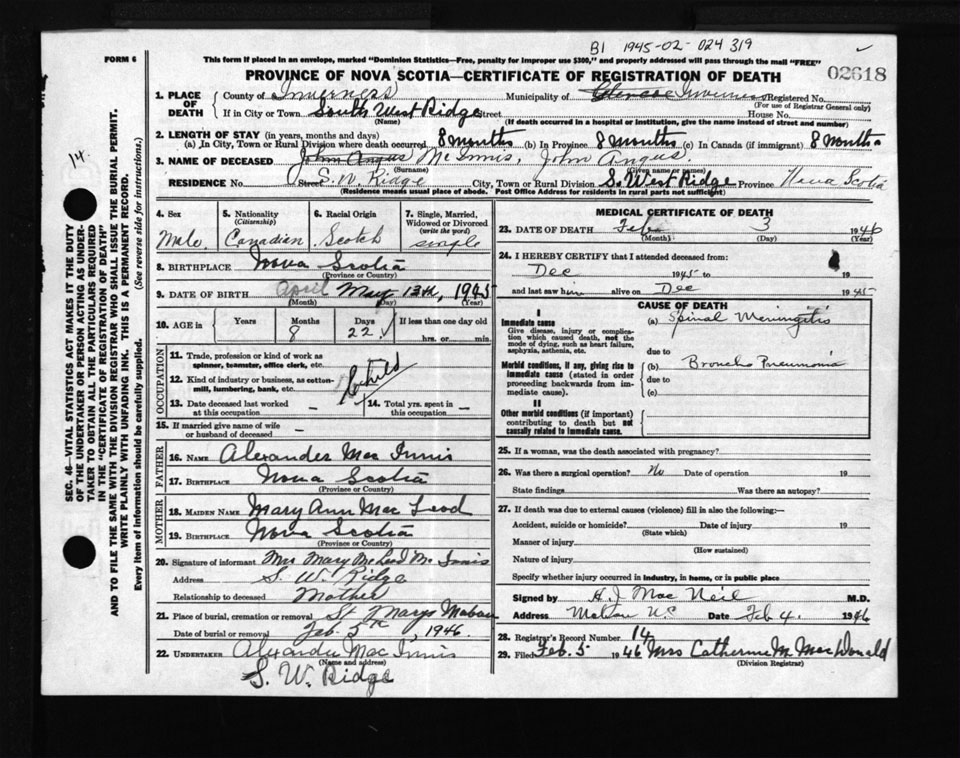 B1 1945-02-024319
FORM 6
This form if placed in an envelope, marked "Dominion Statistics—Free, penalty for improper use $300," and properly addressed will pass through the mail "FREE"
PROVINCE OF NOVA SCOTIA—CERTIFICATE OF REGISTRATION OF DEATH
02618
1. PLACE OF DEATH County of Inverness Municipality of Glencoe Inverness Registered No.
(For use of Registrar General only)
If in City or Town South West Ridge Street House No.
(Name) (If death occurred in a hospital or institution, give the name instead of street and number)
2. LENGTH OF STAY (in years, months and days)
(a) In City, Town or Rural Division where death occurred 8 months (b) In Province 8 months (c) In Canada (if immigrant) 8 months
3. NAME OF DECEASED John Angus McInnis, John Angus.
(Surname) (Given name or names)
RESIDENCE No. Street S. W. Ridge City, Town or Rural Division S. West Ridge Province Nova Scotia
(Residence means usual place of abode. Post Office Address for residents in rural parts not sufficient)
4. Sex Male.
5. Nationality (Citizenship) Canadian
6. Racial Origin Scotch
7. Single, Married, Widowed or Divorced (write the word) single
8. BIRTHPLACE Nova Scotia
(Province or Country)
9. DATE OF BIRTH April May 13th, 1945
(Month) (Day) (Year)
10. AGE in Years Months 8 Days 22 If less than one day old hrs. or min.
OCCUPATION
11. Trade, profession or kind of work as spinner, teamster, office clerk, etc.
12. Kind of industry or business, as cotton-mill, lumbering, bank, etc. Child
13. Date deceased last worked at this occupation —
14. Total yrs. spent in this occupation —
15. If married give name of wife or husband of deceased —
FATHER
16. NAME Alexander Mac Innis
17. BIRTHPLACE Nova Scotia
(Province or Country)
MOTHER
18. MAIDEN NAME Mary Ann Mac Leod
19. BIRTHPLACE Nova Scotia
(Province or Country)
20. Signature of informant Mrs Mary McLeod McInnis
Address S. W. Ridge
Relationship to deceased Mother
21. Place of burial, cremation or removal St Marys Mabou
Date of burial or removal Feb. 5th, 1946.
22. UNDERTAKER Alexander Mac Innis
(Name and address)
S. W. Ridge
MEDICAL CERTIFICATE OF DEATH
23. DATE OF DEATH Feb. 3 1946
(Month) (Day) (Year)
24. I HEREBY CERTIFY that I attended deceased from:
Dec 1945 to 19
and last saw him alive on Dec 1945
CAUSE OF DEATH
I
Immediate cause (a) Spinal Meningitis
Give disease, injury or complication which caused death, not the mode of dying, such as heart failure, asphyxia, asthenia, etc.
due to
Morbid conditions, if any, giving rise to immediate cause (stated in order proceeding backwards from immediate cause).
(b) Broncho Pneumonia
due to
(c)
II
Other morbid conditions (if important) contributing to death but not causally related to immediate cause.
25. If a woman, was the death associated with pregnancy?
26. Was there a surgical operation? No Date of operation 19
State findings Was there an autopsy?
27. If death was due to external causes (violence) fill in also the following:—
Accident, suicide or homicide? Date of injury 19
(State which)
Manner of injury
(How sustained)
Nature of injury
Specify whether injury occurred in industry, in home, or in public place
Signed by H. J. Mac Neil M.D.
Address Mabou N.S Date Feb 4. 1946
28. Registrar's Record Number 14
29. Filed Feb. 5 1946 Mrs Catherine M. MacDonald
(Division Registrar)
14.
SEC. 46—VITAL STATISTICS ACT MAKES IT THE DUTY
OF THE UNDERTAKER OR PERSON ACTING AS UNDER-
TAKER TO OBTAIN ALL THE PARTICULARS REQUIRED
IN THE "CERTIFICATE OF REGISTRATION OF DEATH"
AND TO FILE THE SAME WITH THE DIVISION REGISTRAR WHO SHALL ISSUE THE BURIAL PERMIT.
WRITE PLAINLY WITH UNFADING INK. THIS IS A PERMANENT RECORD.
Every item of information should be carefully supplied. (See reverse side for instructions.)